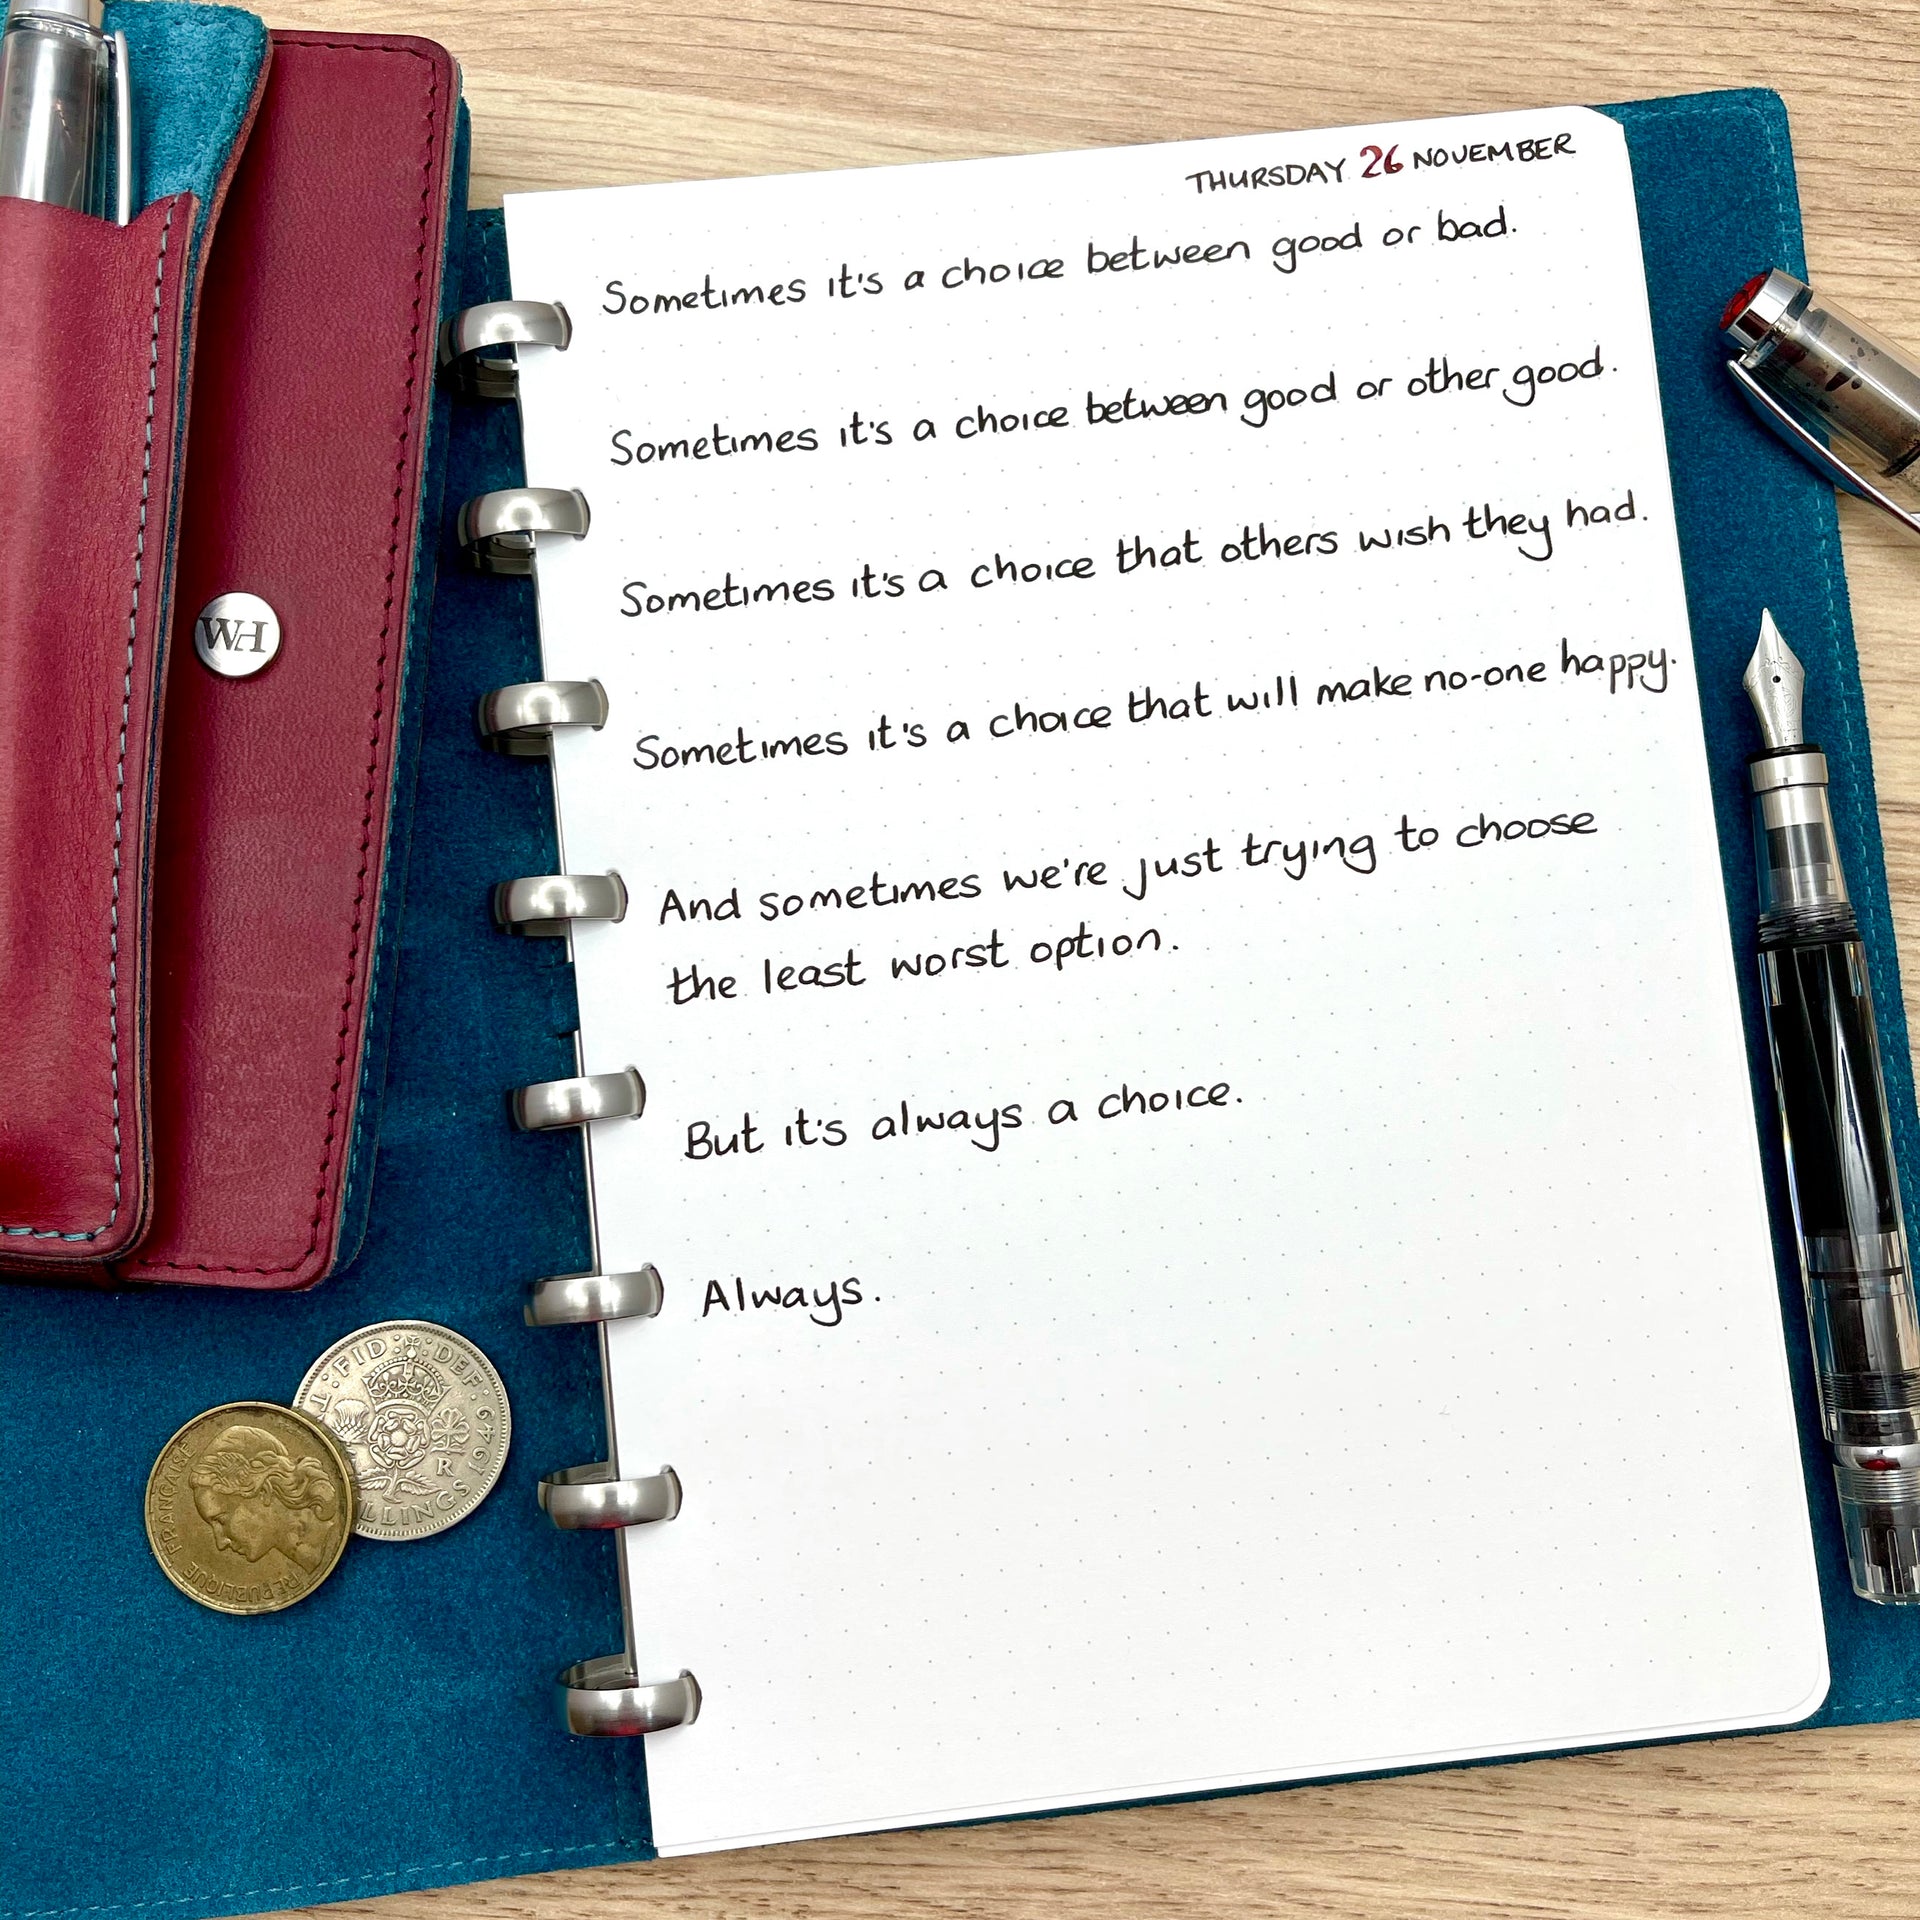 THURSDAY 26 NOVEMBER
Sometimes it's a choice between good or bad.
Sometimes it's a choice between good or other good.
Sometimes it's a choice that others wish they had.
Sometimes it's a choice that will make no-one happy.
And sometimes we're just trying to choose
the least worst option.
But it's always a choice.
Always.
WH
FID DEF
1949
R
LLINGS
REPUBLIQUE FRANÇAISE